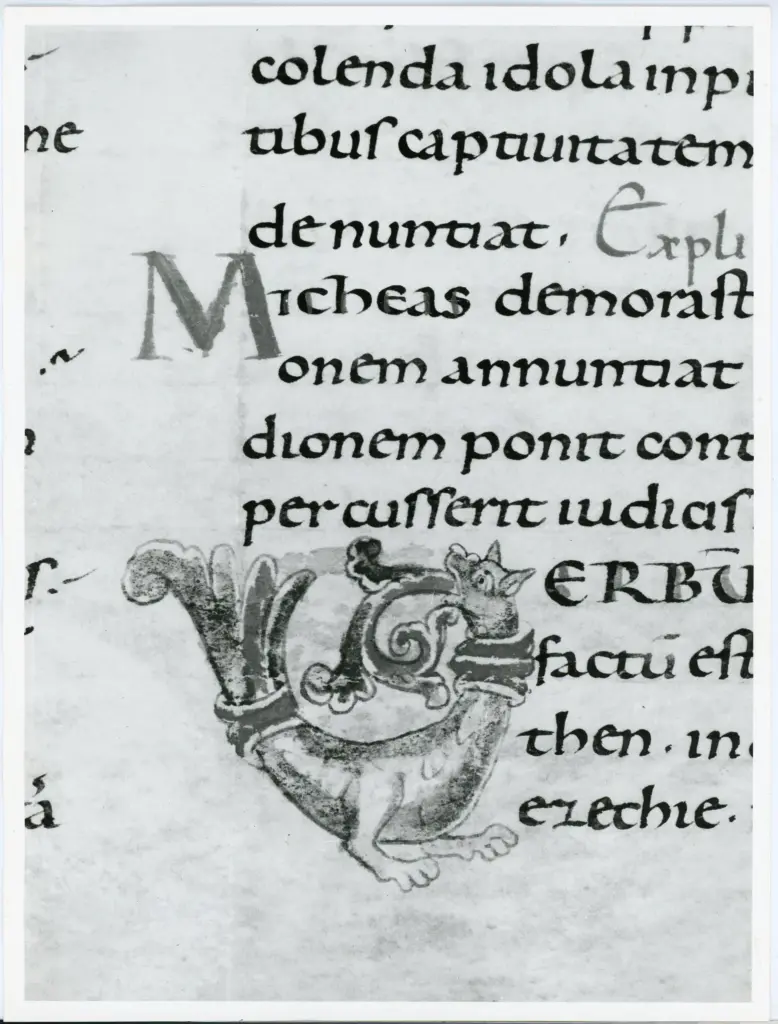 colenda idola inp
tibus captiuitatem
denuntiat. Expli
Micheas demorast
onem annuntiat
dionem ponit cont
percusserit iudicis
VERBŪ
factū est
then. in
ezechie.
ne